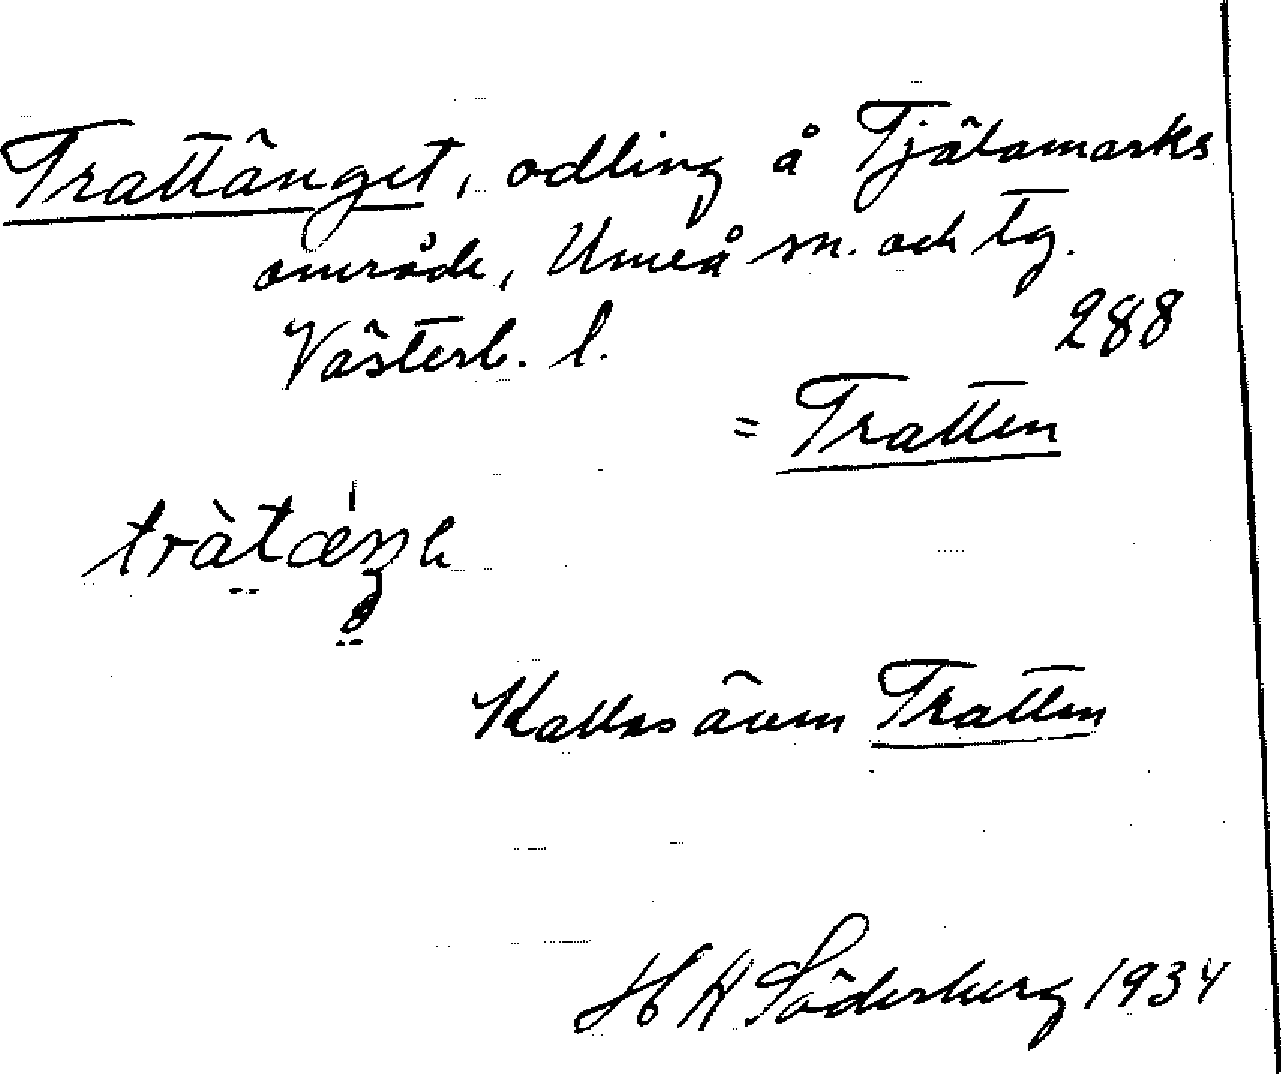 Trattänget, odling å Tjälamarks
område, Umeå sn. och tg.
Västerb. l. 288
= Tratten
Kallas även Tratten
H H Söderberg 1934